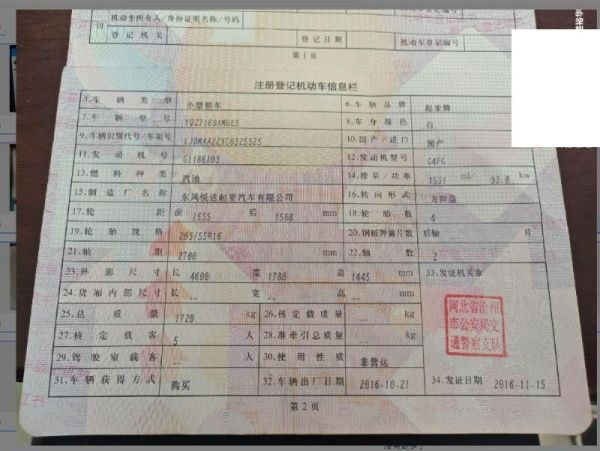 机动车所有人/身份证明名称/号码
登记机关 登记日期 机动车登记编号
第1页
注册登记机动车信息栏
5.车辆类型 小型轿车 6.车辆品牌 起亚牌
7.车辆型号 YQZ7160AMGE5 8.车身颜色 白
9.车辆识别代号/车架号 10.国产/进口 国产
11.发动机号 G1186103 12.发动机型号 G4FG
13.燃料种类 汽油 14.排量/功率 1591 ml/ 93.8 kw
15.制造厂名称 东风悦达起亚汽车有限公司 16.转向形式 方向盘
17.轮距 前 1555 后 1568 mm 18.轮胎数 4
19.轮胎规格 205/55R16 20.钢板弹簧片数 后轴 片
21.轴距 2700 mm 22.轴数 2
23.外廓尺寸 长 4600 宽 1780 高 1445 mm 33.发证机关章
24.货厢内部尺寸 长 -- 宽 -- 高 -- mm
25.总质量 1720 kg 26.核定载质量 -- kg
27.核定载客 5 人 28.准牵引总质量 -- kg
29.驾驶室载客 -- 人 30.使用性质 非营运
31.车辆获得方式 购买 32.车辆出厂日期 2016-10-21 34.发证日期 2016-11-15
河北省沧州
市公安局交
通警察支队
第2页